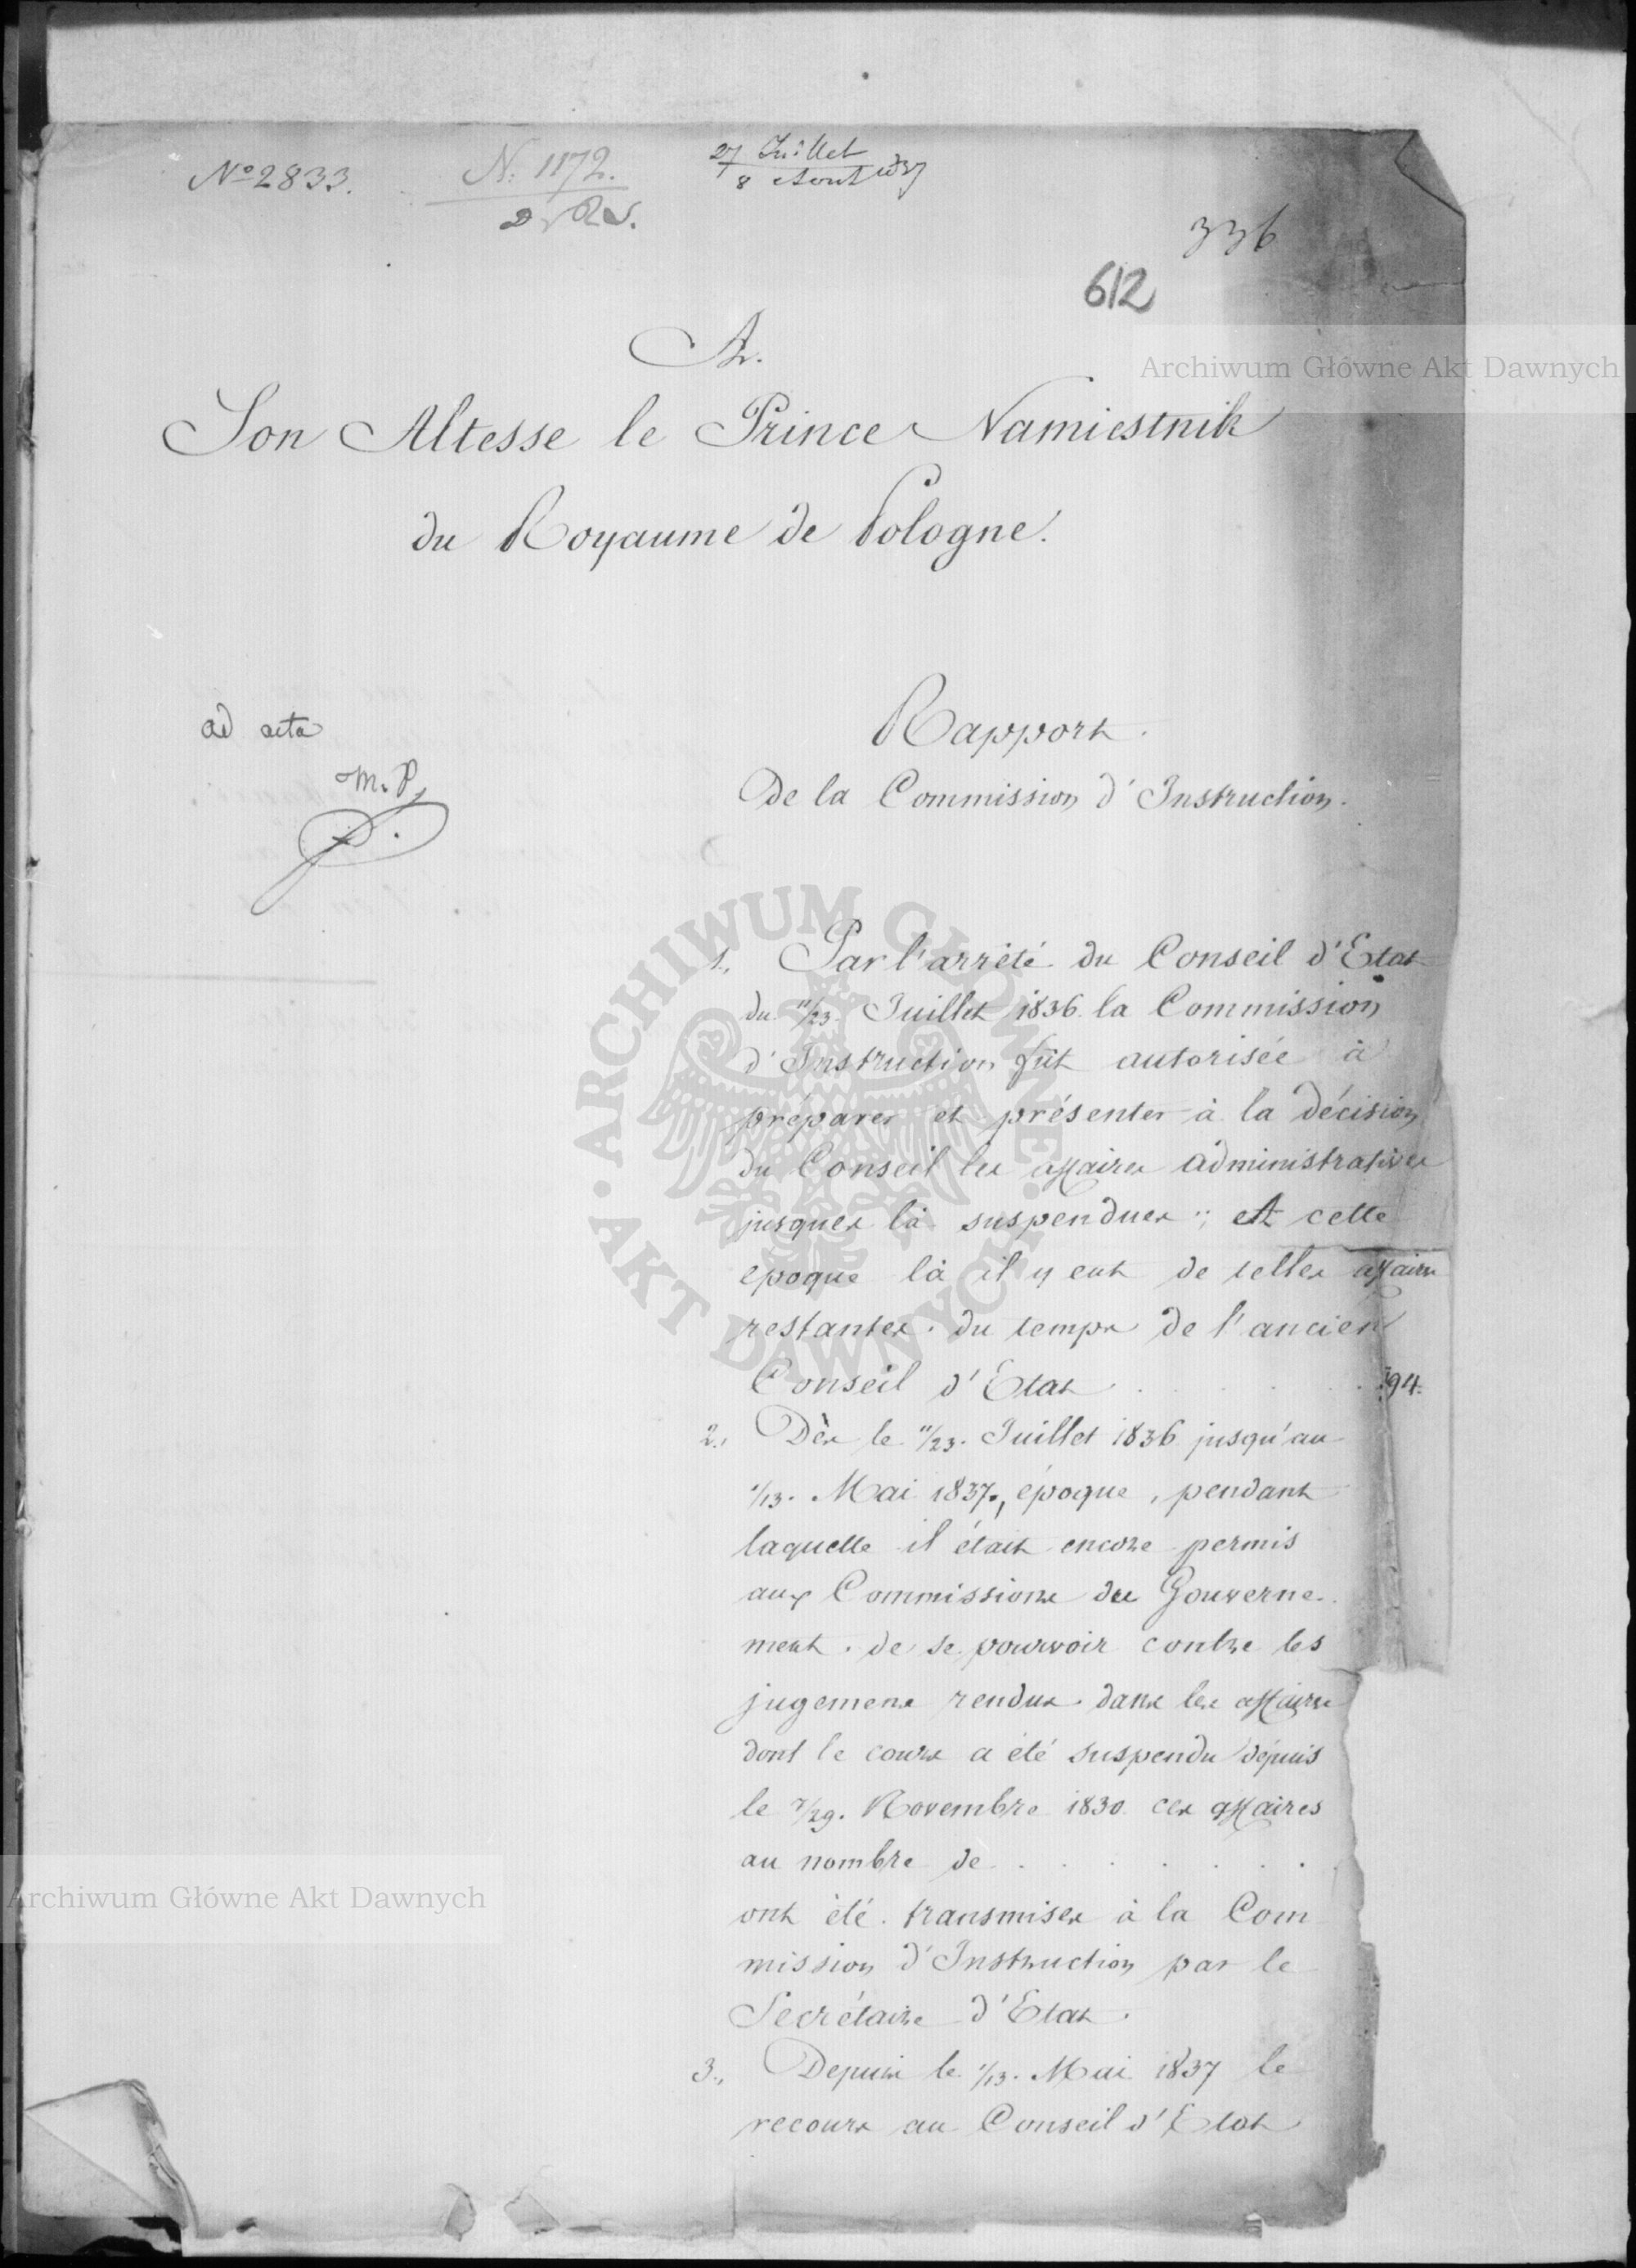 No 2833.
N: 1172.
27 Juillet
8 Aout 1837
336
612
A.
Son Altesse le Prince Namiestnik
du Royaume de Pologne.
ad acta
M. P.
Rapport.
De la Commission d'Instruction.
1., Par l'arrêté du Conseil d'Etat
du 11/23. Juillet 1836. la Commission
d'Instruction fût autorisée à
préparer et présenter à la décision
du Conseil les affaires administratives
jusques là suspendues; A cette
epoque là il y eut de telles affaires
restantes du temps de l'ancien
Conseil d'Etat . . . . . . 94.
2., Dès le 11/23. Juillet 1836 jusqu'au
1/13. Mai 1837., époque, pendant
laquelle il était encore permis
aux Commissions du Gouverne-
ment de se pourvoir contre les
jugemens rendus dans les affaires
dont le cours a été suspendu dépuis
le 17/29. Novembre 1830 ces affaires
au nombre de . . . . . . .
ont été transmises à la Com
mission d'Instruction par le
Secrétaire d'Etat.
3., Depuis le 1/13. Mai 1837 le
recours au Conseil d'Etat
Archiwum Główne Akt Dawnych
ARCHIWUM GŁÓWNE · AKT DAWNYCH ·
Archiwum Główne Akt Dawnych